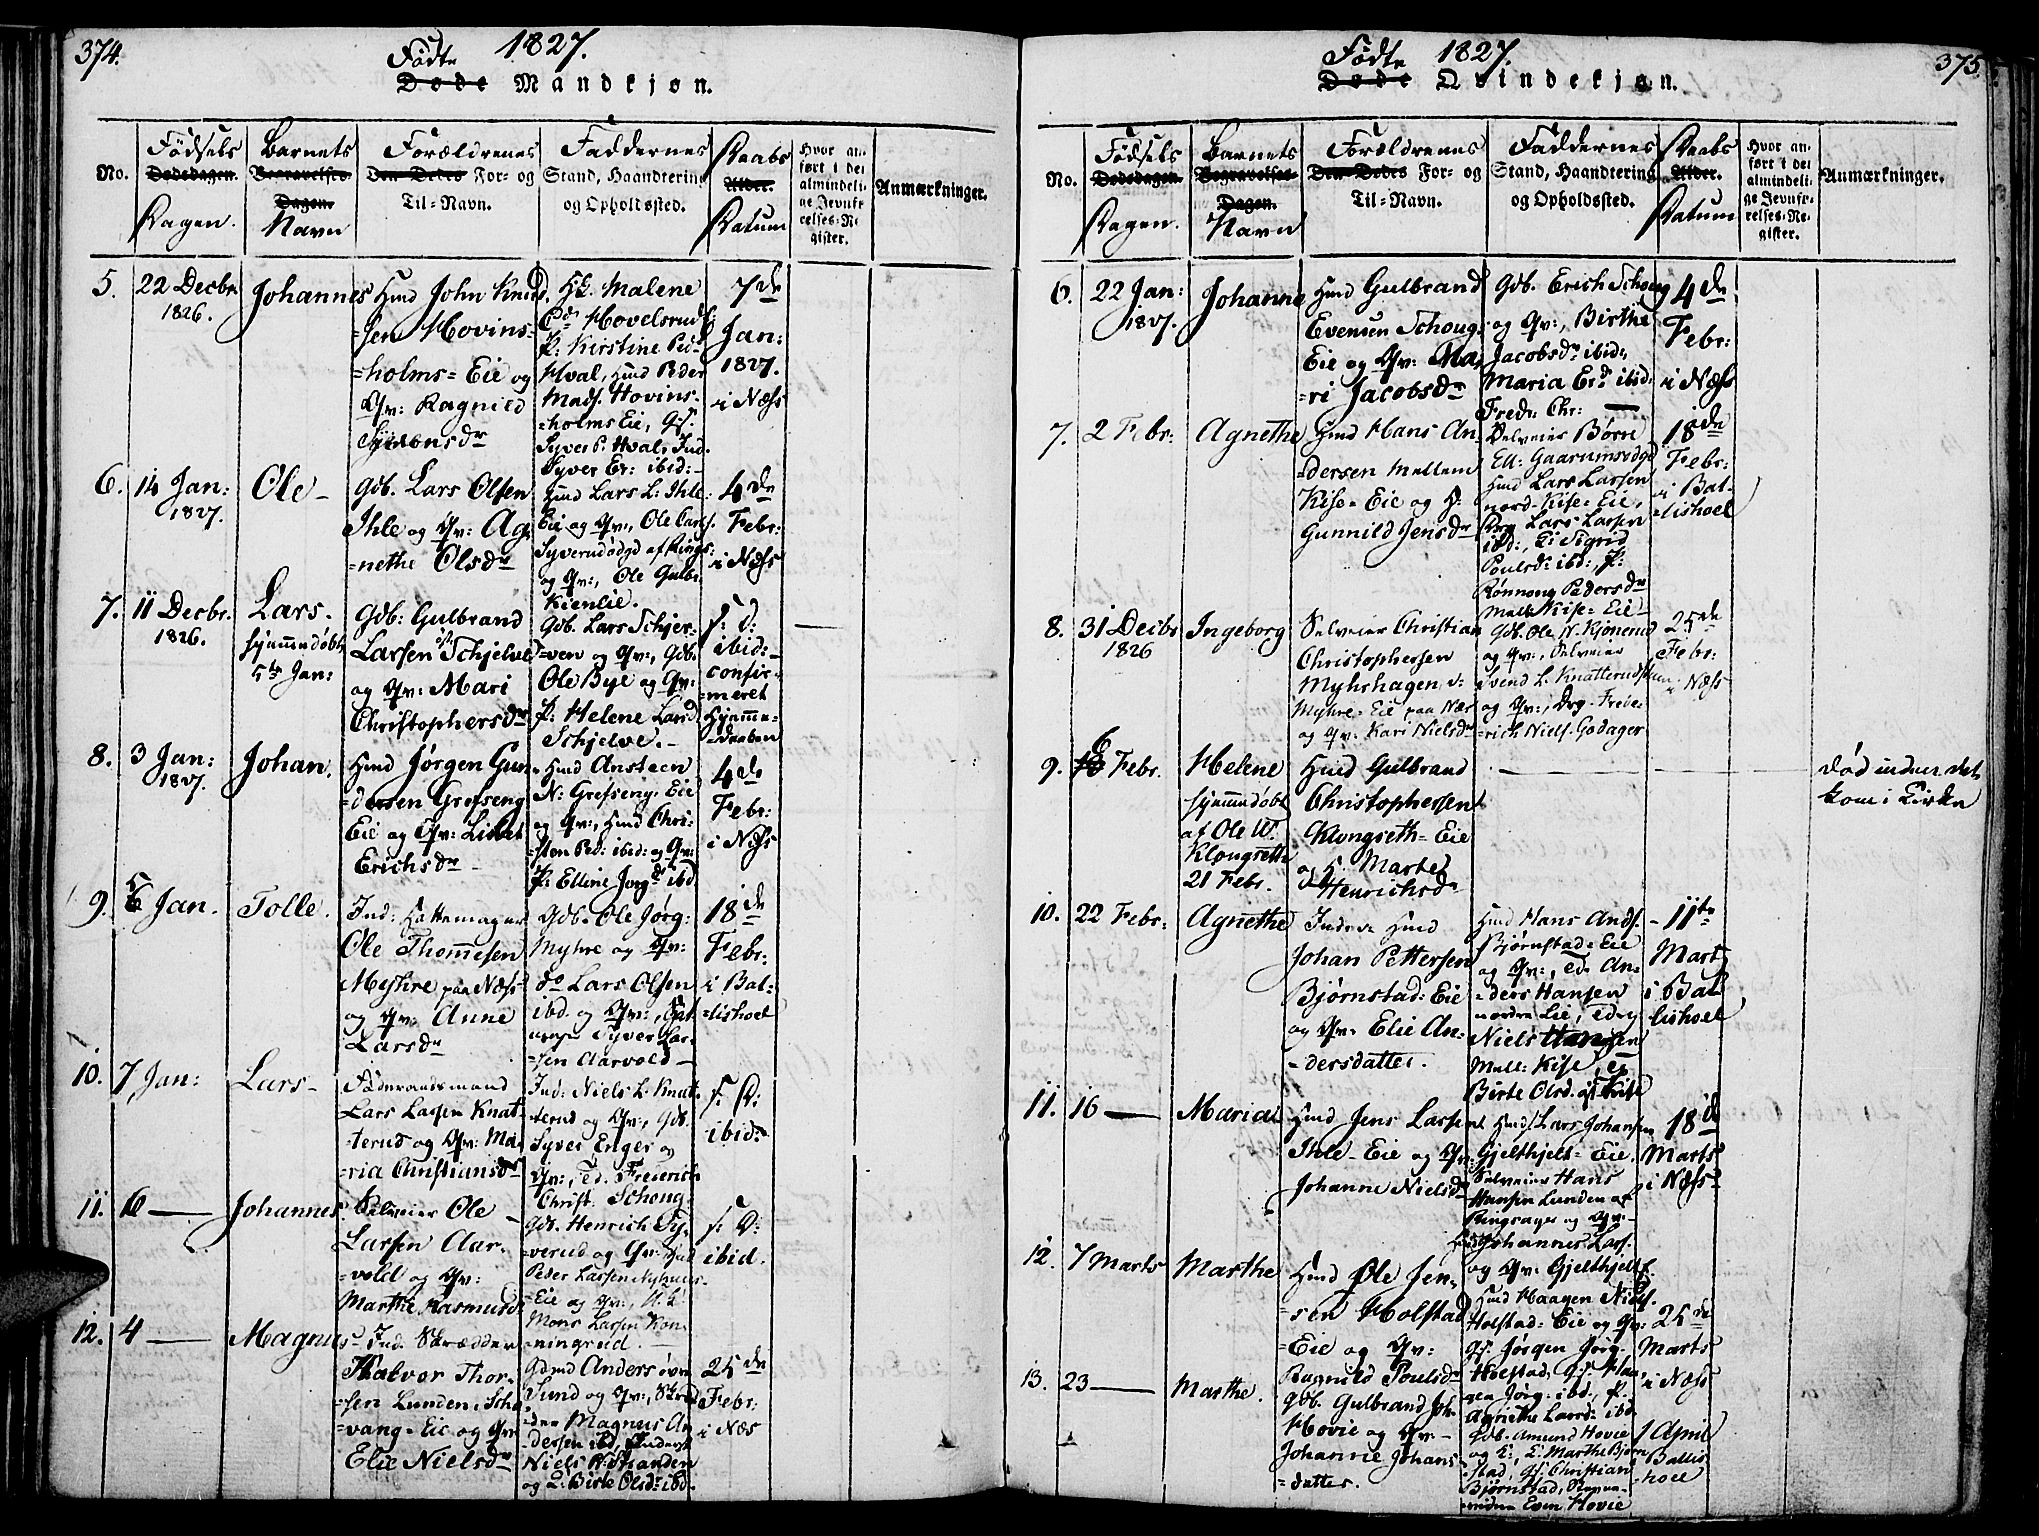 374.
Födte 1827.
Døde Mandkjøn.
No.
Födsels
Dødsdagen.
Dagen.
Barnets
Begravelses-
Dagen.
Navn
Forældrenes
Den Dødes For- og
Til-Navn.
Faddernes
Stand, Haandtering
og Opholdssted.
Daabs
Alder.
Datum
Hvor an-
ført i det
almindeli-
ge Jevnfø-
relses-Re-
gister.
Anmærkninger.
5.
22 Decbr.
1826.
Johannes
Hmd John Knud
=sen Hovins=
=holms= Eie og
Qv: Ragnild
Syvensdr
Malene
Hovelsrud
P: Kirstine Ped:
Hval, Hmd Peder
Mads. Hovins-
=holms Eie,
Syver P. Hval, Ind.
Syver Er: ibid:
7de
Jan:
1827.
i Næss
6.
14 Jan:
1827.
Ole
Gdb. Lars Olsen
Ihle og Qv: Ag-
=nethe Olsdr
Hmd Lars L: Ihle
Eie og Qv:, Ole Larss.
Syverudödgd af Rings:
og Qv:, Ole Gulb:
Kienlie.
4de
Febr:
i Næss
7.
11 Decbr.
1826.
Lars.
hjemmedöbt
5te Jan:
Gdb: Gulbrand
Larsen Schjelve
og Qv: Mari
Christophersdr
Gdb. Lars Schjer-
=ven og Qv:, Gdb.
Ole Bye og Qv:
P: Helene Larsd
Schjelve.
s: d:
ibid:
confir-
=meret
hjemme-
=daaben
8.
3 Jan:
1827.
Johan.
Hmd Jørgen Gun-
=dersen Grefseng
Eie og Qv: Lisbet
Erichsdr
Hmd Ansteen
N: Grefseng: Eie
og Qv:, Hmd Chri-
=sten Ped: ibid: og Qv:
P: Elline Jorgdr ibd.
4de
Febr:
i Næss
9.
5 Jan.
Tolle.
Ind: Hattemager
Ole Thommesen
Myhre paa Næss
og Qv: Anne
Larsdr
Gdb. Ole Jørg:
Myhre og Qv:
do Lars Olsen
ibd. og Qv:,
Syver Lar-
=sen Aarvold
18de
Febr:
i Bal-
=lishoel
10.
7 Jan:
Lars
Föderaadsmand
Lars Larsen Knat-
=terud og Qv: Ma-
=ria Christiansdr
Ind: Niels L: Knat-
=terud og Qv:, Gdb.
Syver Enger og
Qv:, Frederich
Christ: Schoug
s: D:
ibid:
11.
6 —
Johannes
Selveier Ole
Larsen Aar-
=vold og Qv:
Marthe Rasmusd
Gdb. Henrich Sy-
=verud og Qv: Hmd
Peder Larsen Nyhuus-
=Eie og Qv:,
Mons Larsen Kon-
=ningrud.
s: D:
ibid.
12.
4 —
Magnus
Ind. Skrædder
Halvor Thor-
=sen Lunden, Scho
=vang= Eie og Qv
Elie Nielsdr
Gdmd Anders övre
Sund og Qv:, Skræd
=der Magnus An-
=dersen ibd,
Niels
og Birte Olsd: ibd.
25de
Febr:
i Næs
375.
Födte 1827.
Døde Qvindekjøn.
No.
Födsels
Dødsdagen.
Dagen.
Barnets
Begravelses-
Dagen.
Navn
Forældrenes
Den Dødes For- og
Til-Navn.
Faddernes
Stand, Haandtering
og Opholdssted.
Daabs
Alder.
Datum
Hvor an-
ført i det
almindeli-
ge Jevnfø-
relses-Re-
gister.
Anmærkninger.
6.
22 Jan:
1827.
Johanne
Hmd Gulbrand
Evensen Schoug-
Eie og Qv: Ma-
=ri Jacobsdr
Gdb. Erich Schoug
og Qv:, Birthe
Jacobsdr ibid:,
Maria Erd: ibid.
Fredr: Chr:
4de
Febr:
i Næss
7.
2 Febr:
Agnethe
Hmd Hans An-
=dersen Mellem
Kise= Eie og H:
Gunnild Jensdr
Selveier Børre
Ell: Gaarumsödgd
Hmd Lars Larsen
nord-Kise= Eie,
Lars Larsen
ibd:, Sigrid
Poulsd: ibd:, P:
Rönnoug Pedersdr
Mell Kise= Eie
18de
Febr:
i Bal-
=lishoel
8.
31 Decbr
1826
Ingeborg
Selveier Christian
Christophersen
Myhrhagen v:
Myhre= Eie paa Næs
og Qv: Kari Nielsdr
Gdb. Ole N. Kjönerud
og Qv:, Selveier
Svend L. Knatterudstuen
og Qv:, Drg. Frede-
=rich Niels. Godager
25de
Febr:
i Næss
9.
6 Febr.
Helene
hjemmedöbt
af Ole W:
Klougseth
21 Febr.
Hmd Gulbrand
Christophersen
Klongseth= Eie
og H: Marte
Henrichsdr
død inden det
kom i Kirken
10.
22 Febr:
Agnethe
Inders: Hmd
Johan Pettersen
Bjørnstad: Eie
og Qv: Elie An-
=dersdatter.
Hmd Hans Ands.
Bjørnstad= Eie
og Qv:, An-
=ders Hansen
nordre Lie,
Niels Hansen
Mell: Kise,
Birte Olsd.
11te
Marts
i Bal-
lishoel
11.
16 —
Maria
Hmd Jens Larsen
Ihle- Eie og Qv:
Johanne Nielsd
Hmd Lars Johansen
Gjelthjelt= Eie.
Selveier Hans
Hansen Lunden af
Ringsager og Qv:
Hmd Johannes Lars.
og Qv: Gjelthjelt
18de
Marts
i Næss
12.
7 Marts
Marthe
Hmd Ole Jen-
=sen Holstad
=Eie og Qv:
Ragnild Poulsdr
Hmd Haagen Niels.
Holstad= Eie og Qv:
Jørgen Jörg.
Holstad, Haa-
gen Jörg. ibd., P.
Agnethe Larsd: ibd.
25de
Marts
i Næss
13.
23 —
Marthe.
Gdb. Gulbrand Joh
Hovie og Qv:
Johanne Johans
=datter.
Gdb. Amund Hovie
og Marthe Bjørn
=stad, Christian
Bjørnstad,
Even Hovie
1 April
Ballis
=hoel